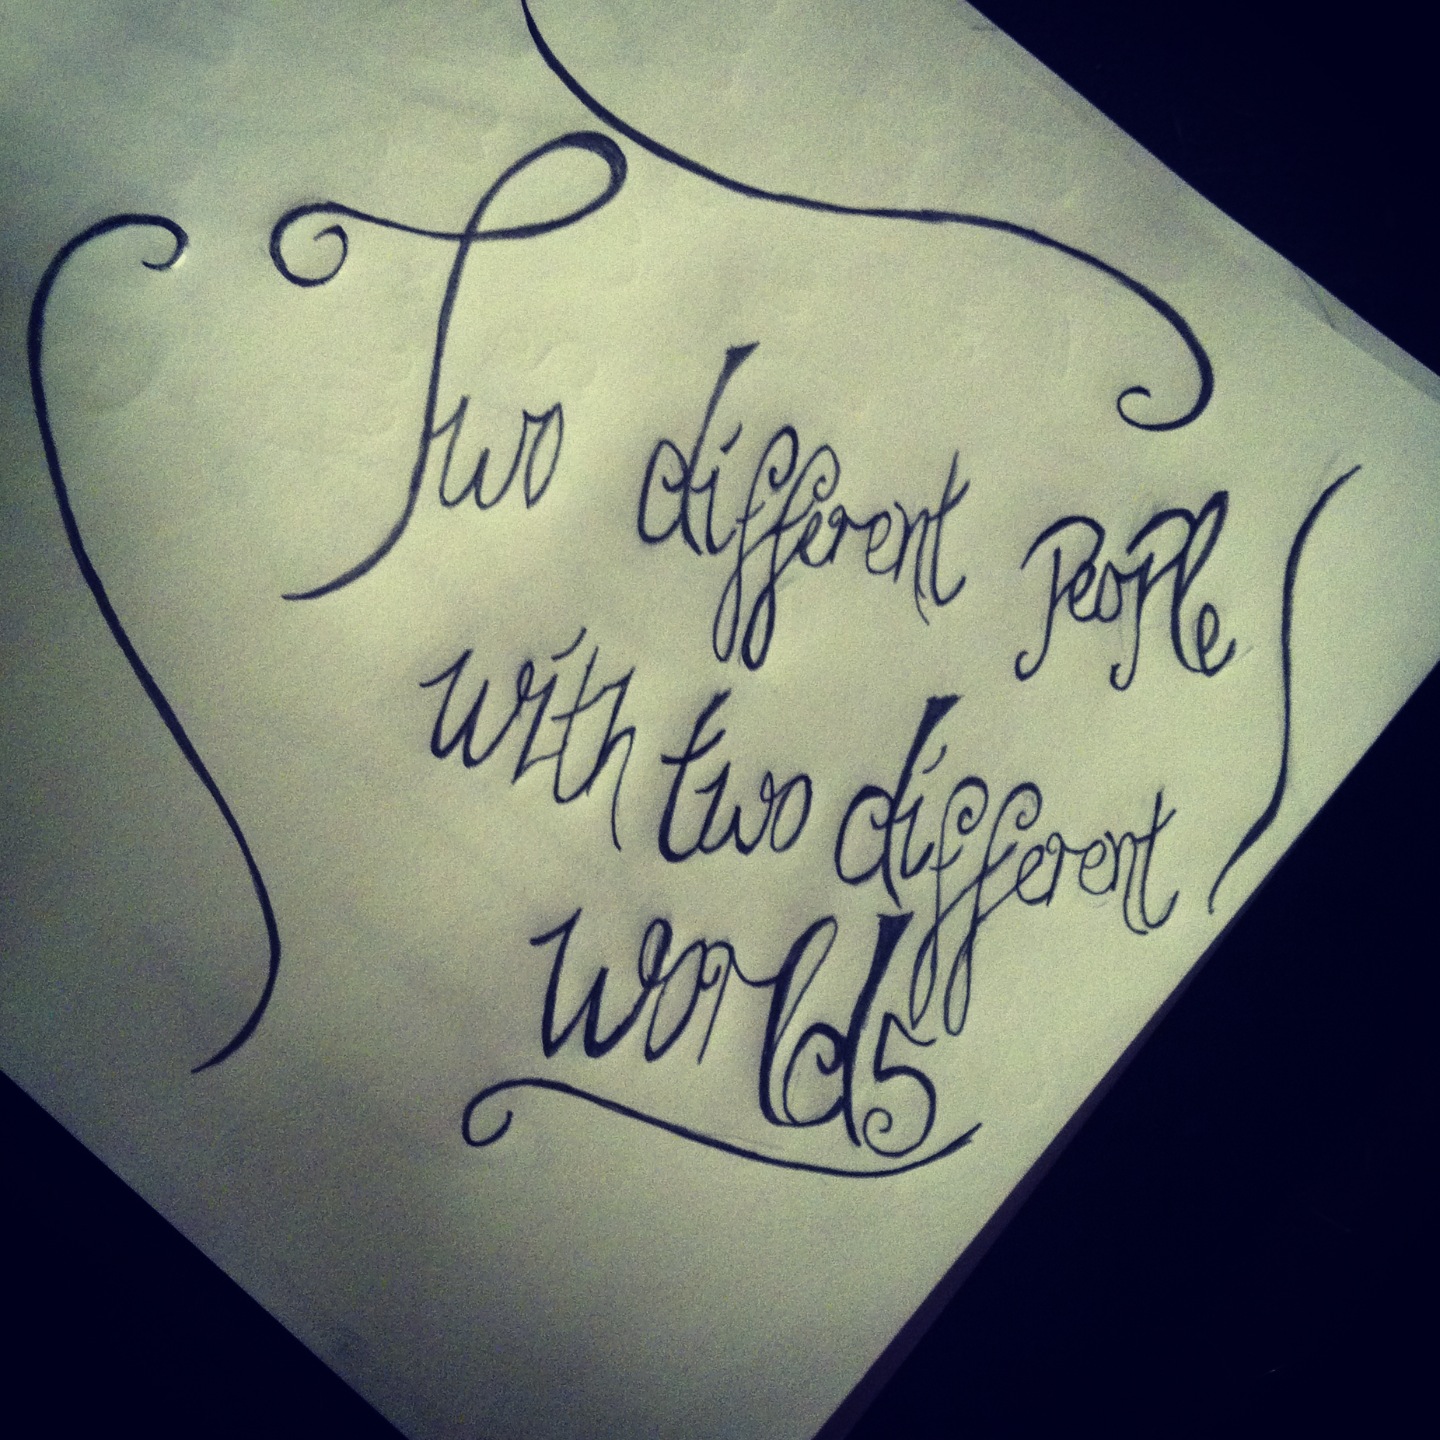 Two different People
with two different
worlds